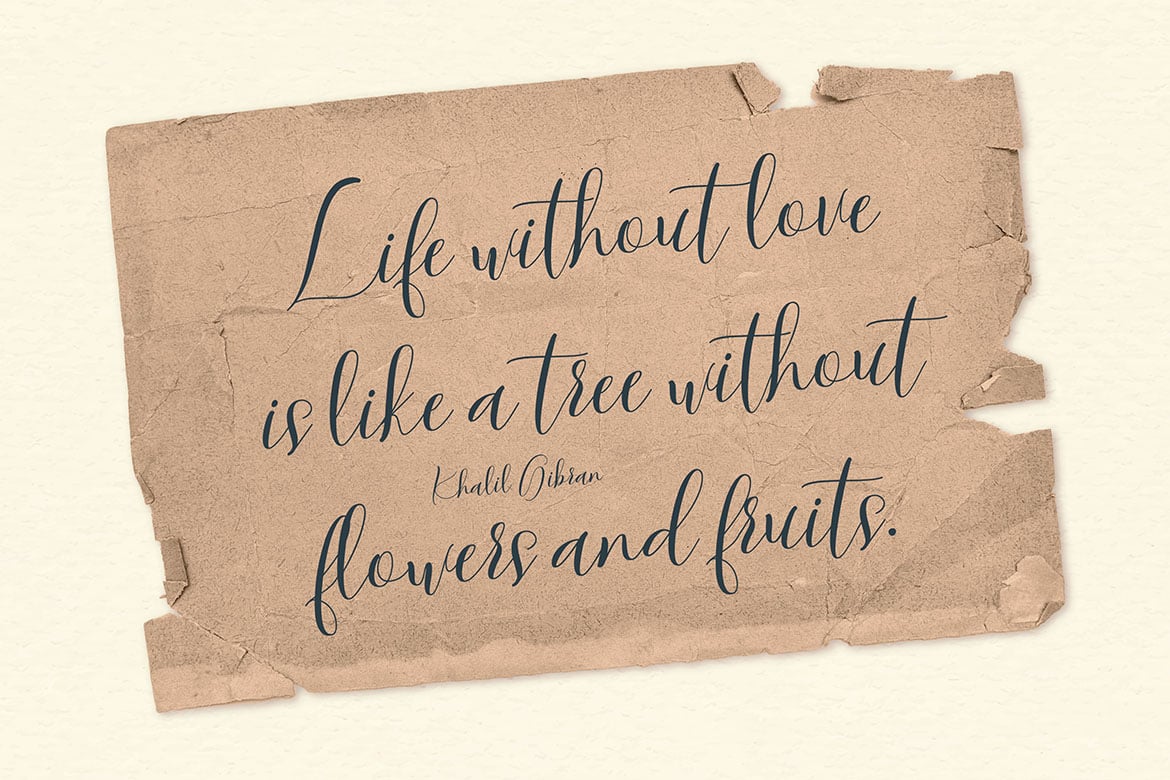 Life without love
is like a tree without
Khalil Gibran
flowers and fruits.